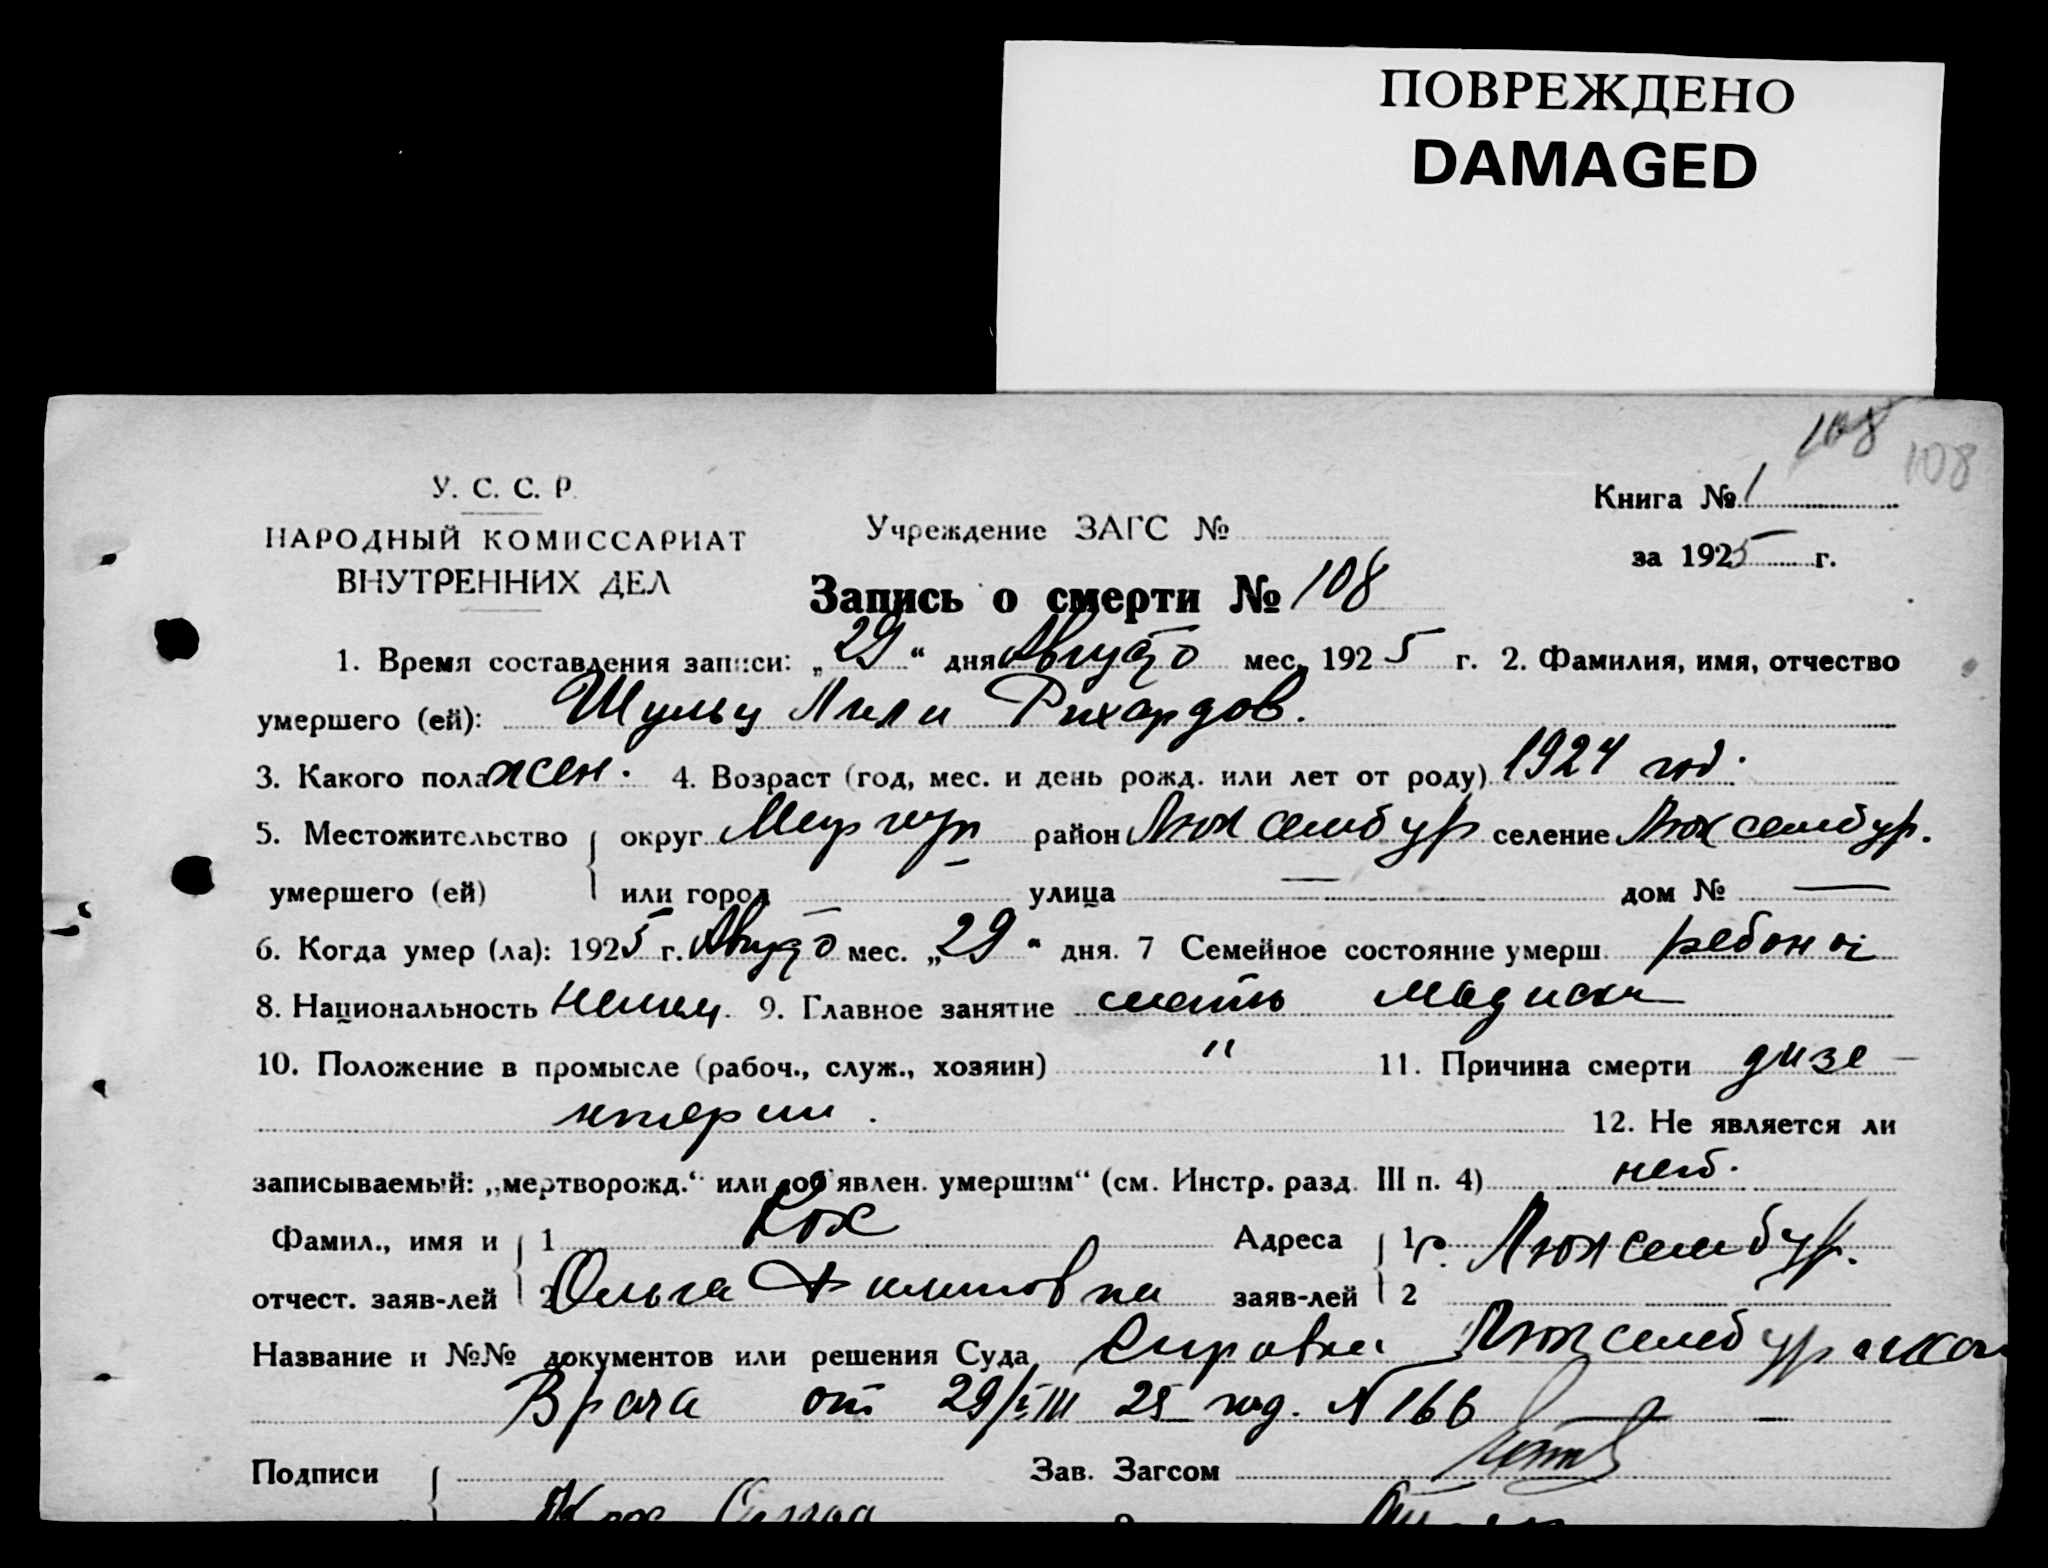 ПОВРЕЖДЕНО
DAMAGED
108 108
У. С. С. Р.
НАРОДНЫЙ КОМИССАРИАТ
ВНУТРЕННИХ ДЕЛ
Учреждение ЗАГС №
Книга № 1
за 1925 г.
Запись о смерти № 108
1. Время составления записи: „29“ дня Августо мес. 1925 г. 2. Фамилия, имя, отчество
умершего (ей): Шульц Лили Рихардов.
3. Какого пола жен. 4. Возраст (год, мес. и день рожд. или лет от роду) 1924 год.
5. Местожительство округ район Люксембур селение Люксембур.
умершего (ей) или город — улица — дом № —
6. Когда умер (ла): 1925 г. Августо мес. „29“ дня. 7 Семейное состояние умерш. ребонок
8. Национальность немец. 9. Главное занятие мать
10. Положение в промысле (рабоч., служ., хозяин) " 11. Причина смерти дизе-
нтерии. 12. Не является ли
записываемый: „мертворожд.“ или „об'явлен. умершим“ (см. Инстр. разд. III п. 4) нет.
Фамил., имя и 1 Кох Адреса 1 с. Люксембур.
отчест. заяв-лей 2 Ольга Филиповна заяв-лей 2
Название и №№ документов или решения Суда Справка Люксембургской
Врача от 29/VIII 25 год. N 166
Подписи Зав. Загсом
Кох Ольга